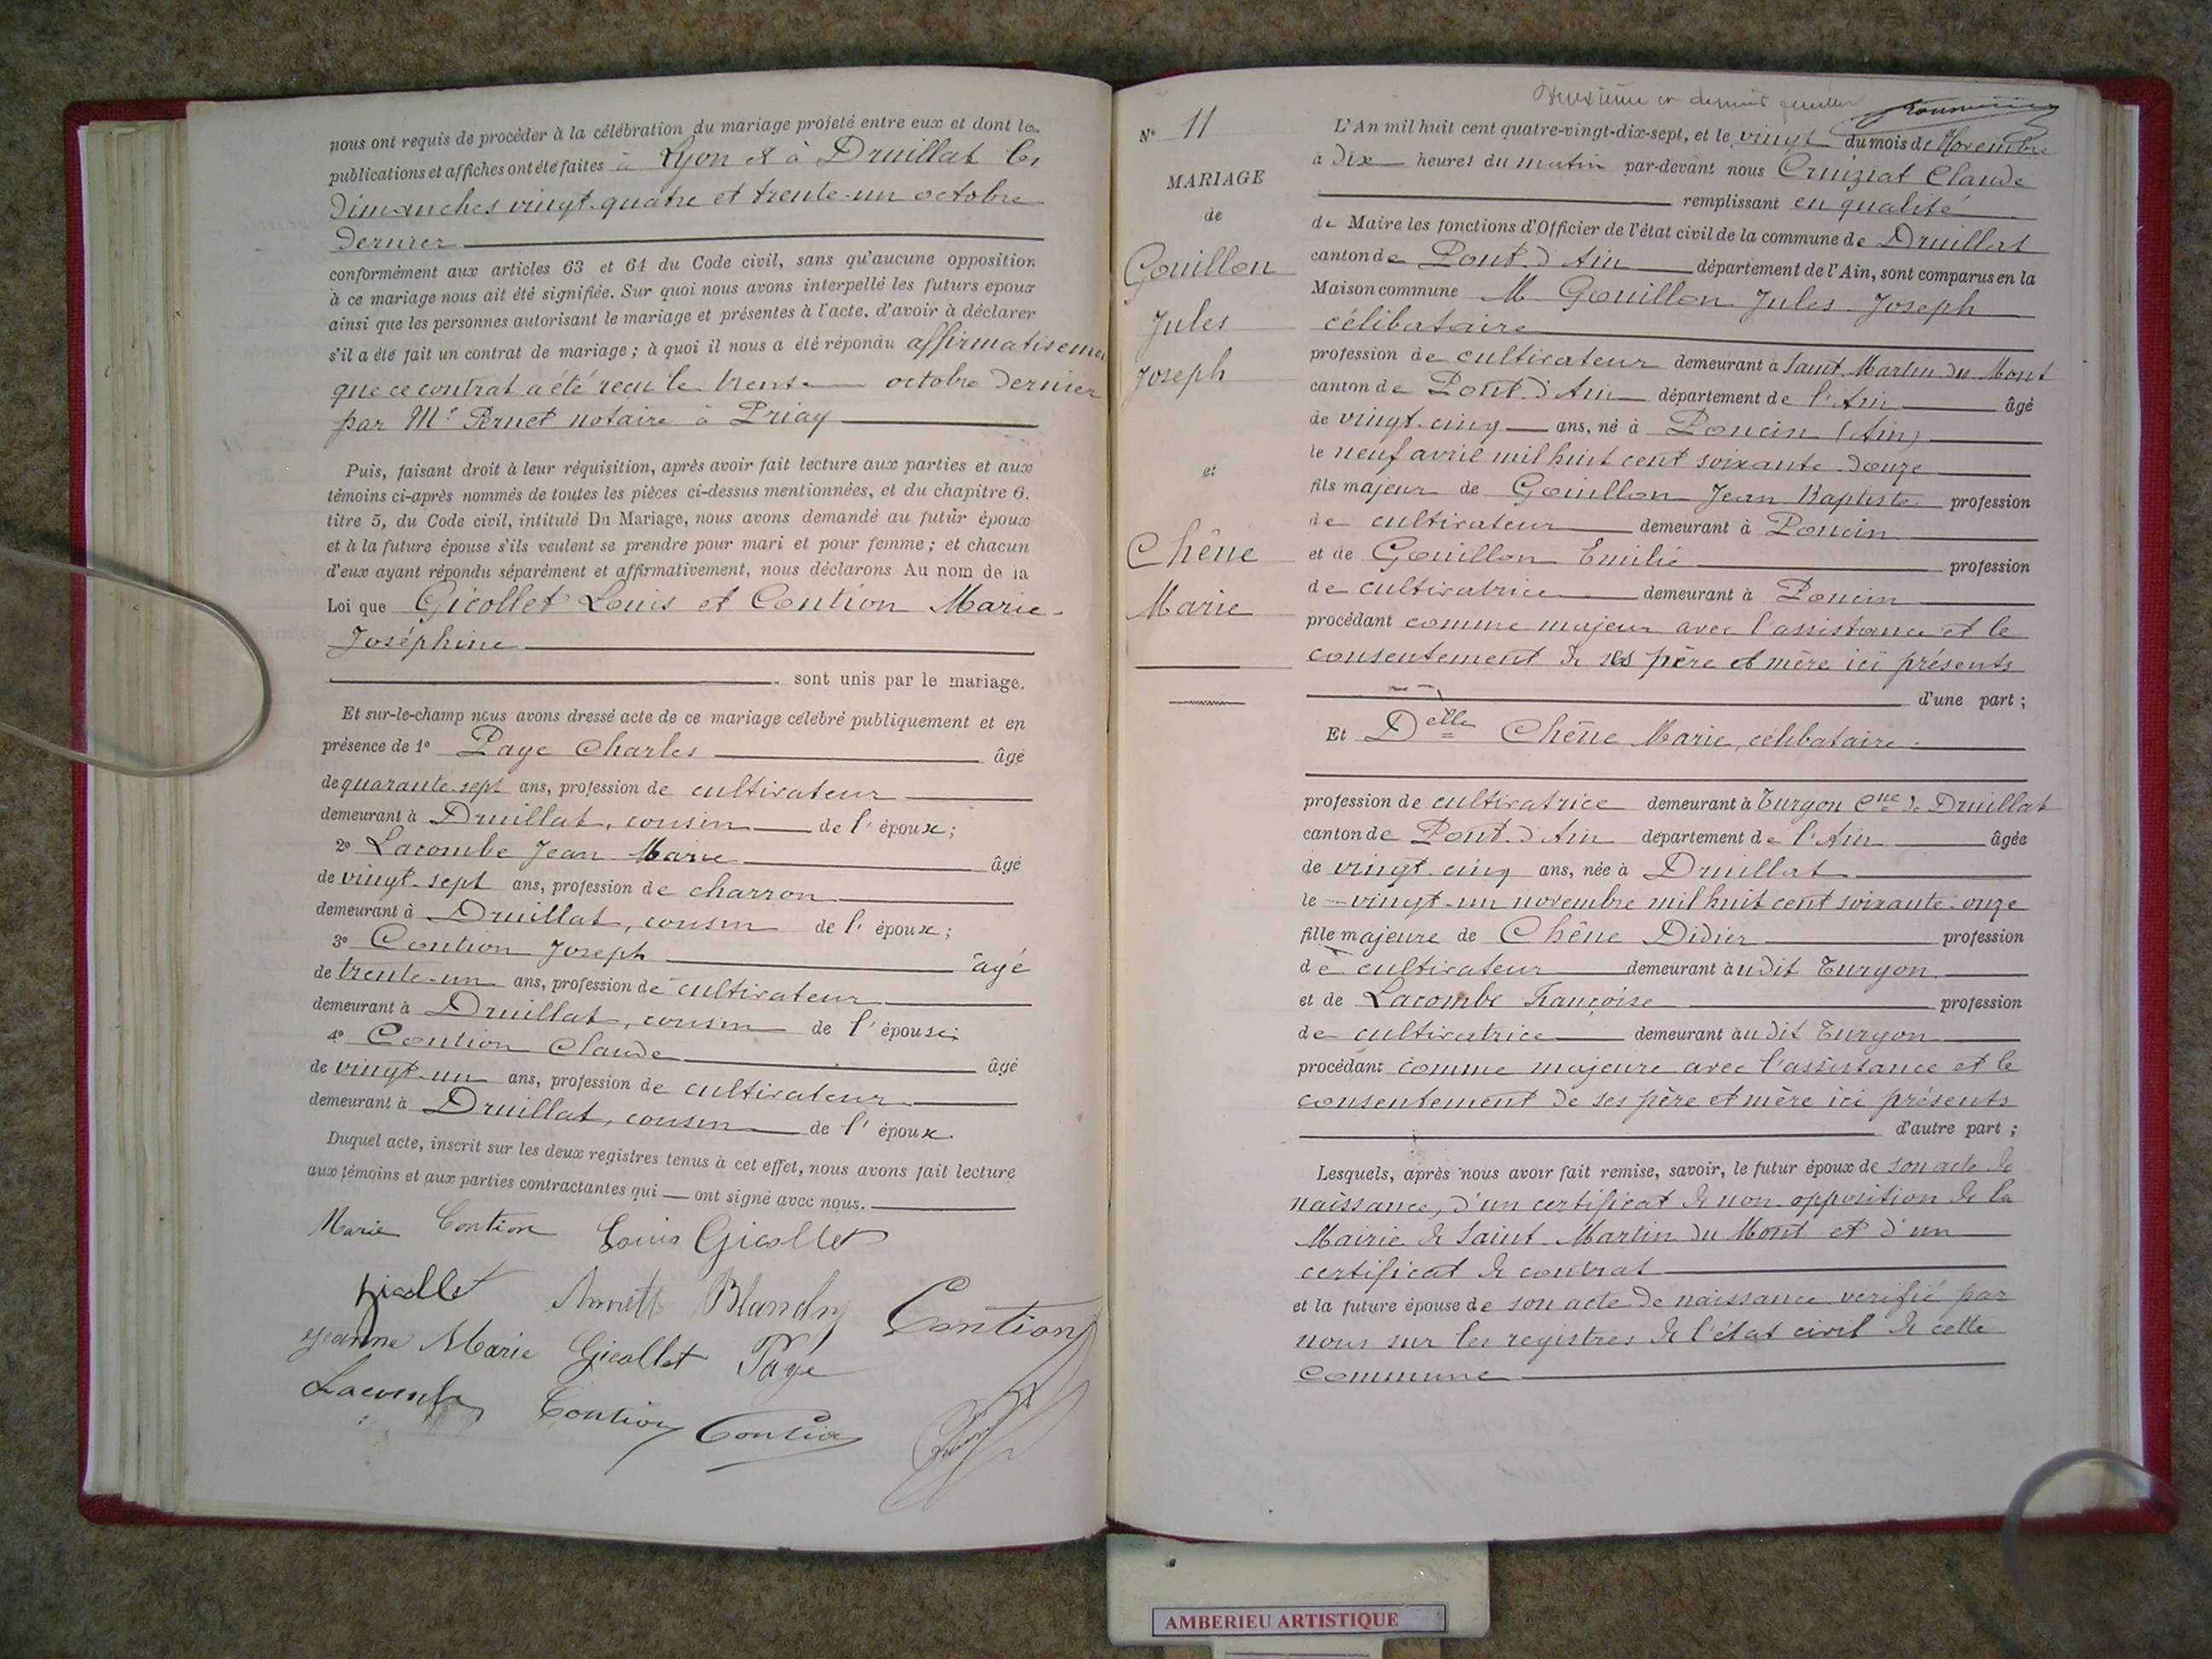 nous ont requis de procéder à la célébration du mariage projeté entre eux et dont les
publications et affiches ont été faites à Lyon et à Druillat les
Dimanches vingt-quatre et trente-un octobre
dernier
conformément aux articles 63 et 64 du Code civil, sans qu'aucune opposition
à ce mariage nous ait été signifiée. Sur quoi nous avons interpellé les futurs epoux
ainsi que les personnes autorisant le mariage et présentes à l'acte, d'avoir à déclarer
s'il a été fait un contrat de mariage ; à quoi il nous a été répondu affirmativeme
que ce contrat a été reçu le trente octobre dernier
par Me Pernet notaire à Priay
Puis, faisant droit à leur réquisition, après avoir fait lecture aux parties et aux
témoins ci-après nommés de toutes les pièces ci-dessus mentionnées, et du chapitre 6.
titre 5, du Code civil, intitulé Du Mariage, nous avons demandé au futur époux
et à la future épouse s'ils veulent se prendre pour mari et pour femme ; et chacun
d'eux ayant répondu séparément et affirmativement, nous déclarons Au nom de la
Loi que Gicollet Louis et Contion Marie-
Joséphine
sont unis par le mariage.
Et sur-le-champ nous avons dressé acte de ce mariage célébré publiquement et en
présence de 1° Paye Charles âgé
de quarante-sept ans, profession de cultivateur
demeurant à Druillat, cousin de l'époux ;
2° Lacombe Jean Marie âgé
de vingt-sept ans, profession de charron
demeurant à Druillat, cousin de l'époux ;
3° Contion Joseph âgé
de trente-un ans, profession de cultivateur
demeurant à Druillat, cousin de l'épouse ;
4° Contion Claude âgé
de vingt-un ans, profession de cultivateur
demeurant à Druillat, cousin de l'époux.
Duquel acte, inscrit sur les deux registres tenus à cet effet, nous avons fait lecture
aux témoins et aux parties contractantes qui — ont signé avec nous.
Marie Contion Louis Gicollet
Gicollet Blandny Contion
Jeanne Marie Gicollet Paye
Lacombe Contion Contion
Deuxième et dernier feuillet
N° 11
MARIAGE
de
Gouillon
Jules
Joseph
et
Chêne
Marie
L'An mil huit cent quatre-vingt-dix-sept, et le vingt du mois de Novembre
à dix heures du matin par-devant nous Cruiziat Claude
remplissant en qualité
de Maire les fonctions d'Officier de l'état civil de la commune de Druillat
canton de Pont-d'Ain département de l'Ain, sont comparus en la
Maison commune M Gouillon Jules Joseph
célibataire
profession de cultivateur demeurant à Saint Martin du Mont
canton de Pont d'Ain département de l'Ain âgé
de vingt-cinq ans, né à Poncin (Ain)
le neuf avril mil huit cent soixante-douze
fils majeur de Gouillon Jean Baptiste profession
de cultivateur demeurant à Poncin
et de Gouillon Emilie profession
de cultivatrice demeurant à Poncin
procédant comme majeur avec l'assistance et le
consentement de ses père et mère ici présents
d'une part ;
Et Delle Chêne Marie, célibataire
profession de cultivatrice demeurant à Turgon Cne de Druillat
canton de Pont-d'Ain département de l'Ain âgée
de vingt-cinq ans, née à Druillat
le vingt-un novembre mil huit cent soixante-onze
fille majeure de Chêne Didier profession
de cultivateur demeurant audit Turgon
et de Lacombe Françoise profession
de cultivatrice demeurant audit Turgon
procédant comme majeure avec l'assistance et le
consentement de ses père et mère ici présents
d'autre part ;
Lesquels, après nous avoir fait remise, savoir, le futur époux de son acte de
naissance, d'un certificat de non-opposition de la
Mairie de Saint-Martin du Mont et d'un
certificat de contrat
et la future épouse de son acte de naissance vérifié par
nous sur les registres de l'état civil de cette
Commune
AMBERIEU ARTISTIQUE